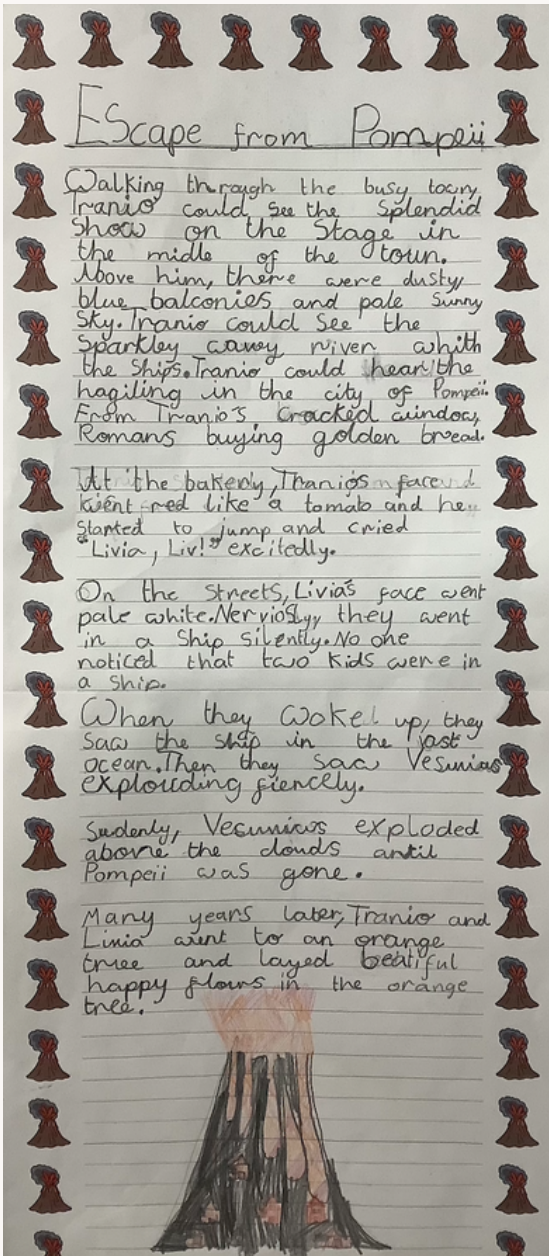 Escape from Pompeii
Walking through the busy town,
Tranio could see the splendid
show on the stage in
the midle of the toun.
Above him, there were dusty
blue balconies and pale sunny
sky. Tranio could see the
sparkley wavy river whith
the ships. Tranio could hear the
hagiling in the city of Pompeii.
From Tranio's cracked window,
Romans buying golden bread.
At the bakery, Tranio's face
went red like a tomato and he
started to jump and cried
"Livia, Liv!" excitedly.
On the streets, Livia's face went
pale white. Nerviosly they went
in a ship silently. No one
noticed that two kids were in
a ship.
When they woke up, they
saw the ship in the
ocean. Then they saw Vesunius
explouding fiercely.
Sudenly, Vesunius exploded
above the clouds antil
Pompeii was gone.
Many years later, Tranio and
Linia went to an orange
truee and layed beatiful
happy flours in the orange
tree.